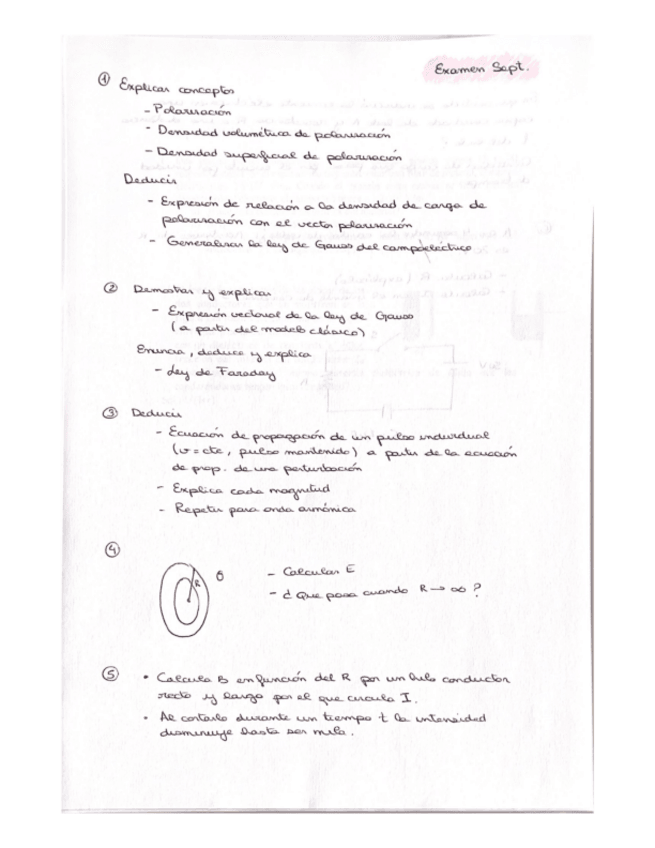 Examen Sept.
① Explicar conceptos
- Polarización
- Densidad volumétrica de polarización
- Densidad superficial de polarización
Deducir
- Expresión de relación a la densidad de carga de
polarización con el vector polarización
- Generalizar la ley de Gauss del campo eléctrico
② Demostrar y explicar
- Expresión vectorial de la ley de Gauss
(a partir del modelo clásico)
Enuncia, deduce y explica
- Ley de Faraday
③ Deducir
- Ecuación de propagación de un pulso individual
(v = cte, pulso mantenido) a partir de la ecuación
de prop. de una perturbación
- Explica cada magnitud
- Repetir para onda armónica
④
R
- Calcular E
- ¿Que pasa cuando R → ∞ ?
⑤ • Calcula B en función del R por un hilo conductor
recto y largo por el que circula I.
• Al cortarlo durante un tiempo t la intensidad
disminuye hasta ser nula.